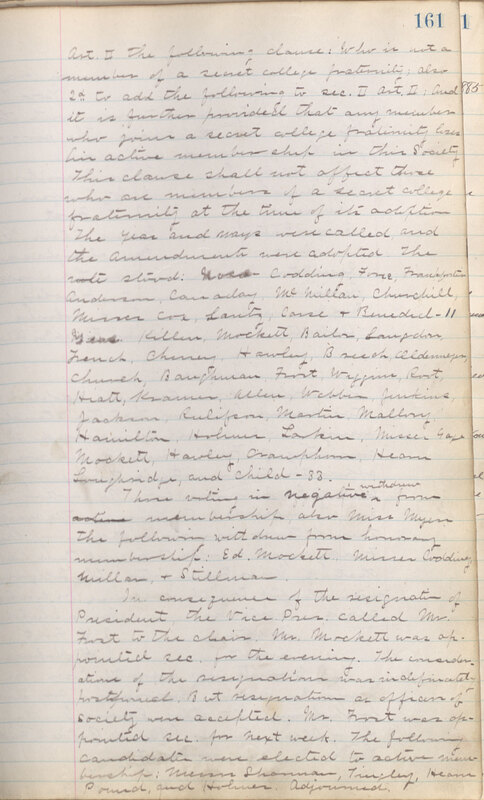 161
1
Art. I the following clause: Who is not a
member of a secret college fraternity; also
2d to add the following to sec. II Art. II; And
it is further provided that any member
who joins a secret college fraternity loses
his active membership in this Society
This clause shall not affect those
who are members of a secret college
fraternity at the time of its adoption
The yeas and nays were called and
the amendments were adopted. The
vote stood: Codding, Free,
Anderson, Canaday, McMillan, Churchill,
Misses Cox, Lantz, Corse & Benedict - 11
Killen, Mockett, Bailor, Langdon,
French, Cheney, Hawley,
Church, Baughman, Frost, Wiggins, Root,
Hiatt, Kramer, Allen, Webber, Jenkins,
Jackson, Rulifson, Martin, Mallory,
Hamilton, Holmes, Larkin, Misses Gage
Mockett, Hawley, Cramphorn, Hearn
Longbridge, and Child - 33.
Those voting in negative withdrew from
active membership, also Miss Myers
the follown withdrew from honorary
membership: Ed. Mockett. Misses Codding,
Millar, & Stillman.
In consequence of the resignation of
President the Vice Pres. called Mr.
Frost to the chair. Mr. Mockett was ap-
pointed sec. for the evening. The consider-
ations of the resignations was indefinately
postponed. But resignation as officers of
Society were accepted. Mr. Frost was ap-
pointed sec. for next week. The following
candidates were elected to active mem-
bership: Messrs Sherman, Tingley, Hearn
Pound, and Holmes. Adjourned.